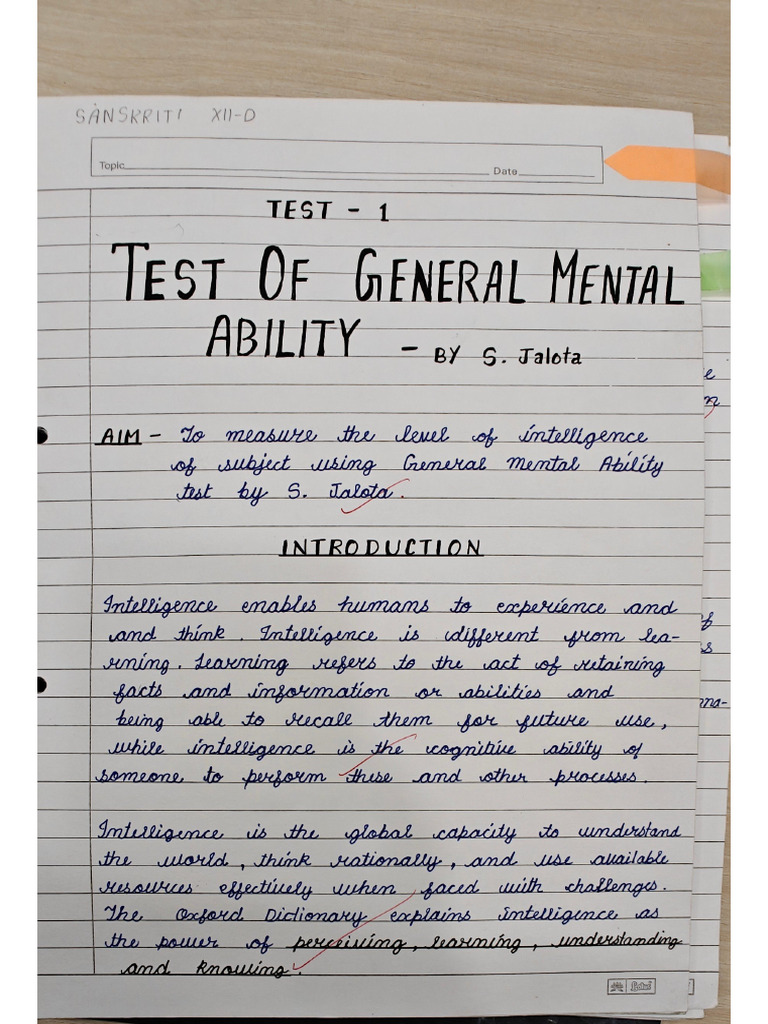 SANSKRITI XII-D
Topic Date
TEST - 1
TEST OF GENERAL MENTAL
ABILITY - BY S. Jalota
AIM - To measure the level of intelligence
of subject using General Mental Ability
test by S. Jalota.
INTRODUCTION
Intelligence enables humans to experience and
and think. Intelligence is different from lea-
rning. Learning refers to the act of retaining
facts and information or abilities and
being able to recall them for future use,
while intelligence is the cognitive ability of
someone to perform these and other processes.
Intelligence is the global capacity to understand
the world, think rationally, and use available
resources effectively when faced with challenges.
The Oxford Dictionary explains intelligence as
the power of perceiving, learning, understanding
and knowing.